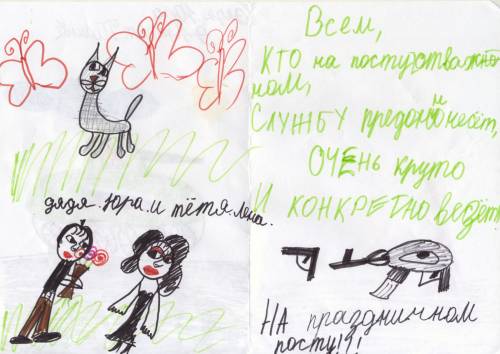 дядя.Юра.и тётя.лена.
Всем,
КТО на посту
ном,
СЛУЖБУ несёт,
ОЧЕНЬ круто
И КОНКРЕТНО везёт!
НА праздничном
посту!?!